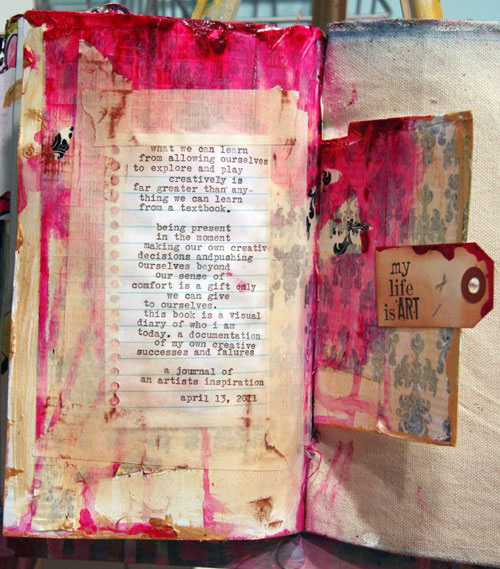 what we can learn
from allowing ourselves
to explore and play
creatively is
far greater than any-
thing we can learn
from a textbook.
being present
in the moment
making our own creativ
decisions andpushing
ourselves beyond
our sense of
comfort is a gift only
we can give
to ourselves.
this book is a visual
diary of who i am
today. a documentation
of my own creative
successes and falures
a journal of
an artists inspiration
april 13, 2011
my
life
is ART